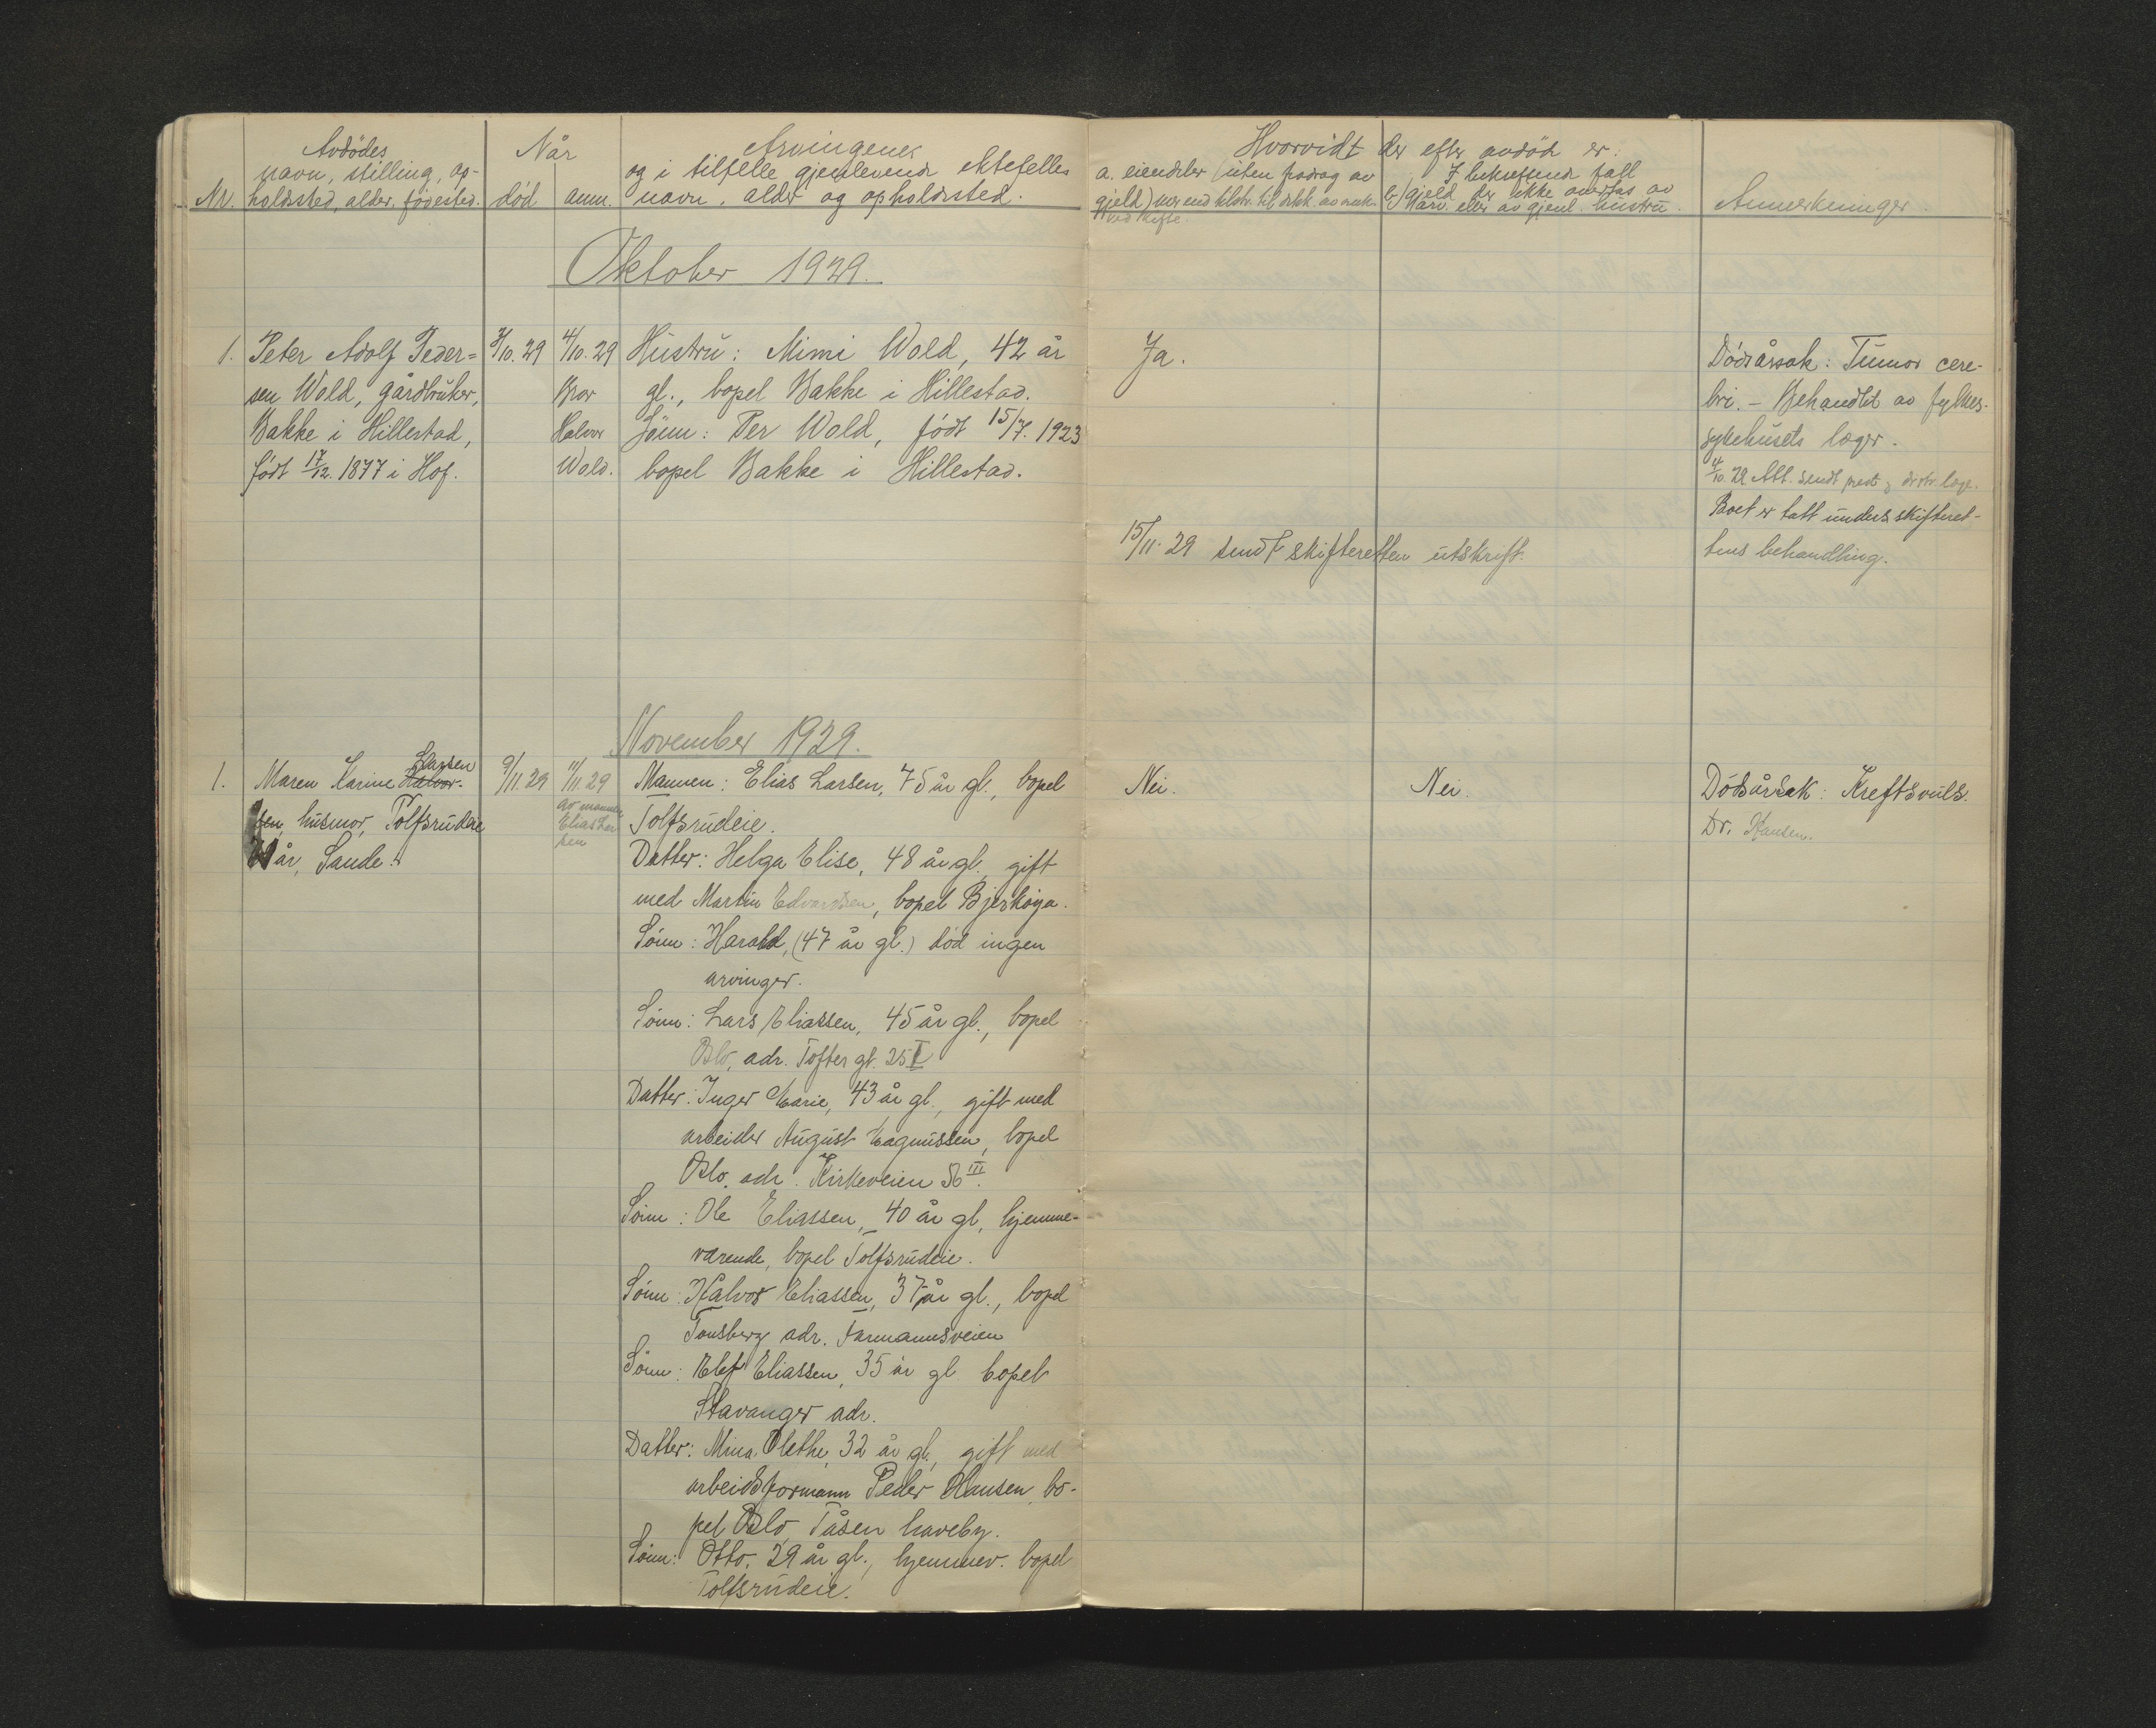 Avdødes
navn, stilling, op-
Nr. holdssted, alder, fødested.
Når
død anm.
Arvingenes
og i tilfelle gjenlevende ektefelles
navn, alder og opholdssted.
Hvorvidt der efter avdøde er:
a. eiendeler (uten fradrag av
gjeld) mer end tilstr. til dekk. av omk.
ved skifte.
I bekreftende fall
b) gjeld der ikke overtas av
arv. eller av gjenl. hustru.
Anmerkninger.
Oktober 1929.
1. Peter Adolf Peder=
sen Wold, gårdbruker,
Bakke i Hillestad,
født 17/12. 1877 i Hof.
3/10. 29
4/10. 29
Bror
Halvor
Wold.
Hustru: Mimi Wold, 42 år
gl., bopel Bakke i Hillestad.
Sønn: Per Wold, født 15/7. 1923
bopel Bakke i Hillestad.
Ja.
15/11. 29 sendt skifteretten utskrift.
Dødsårsak: Tumor cere-
bri. – Behandlet av fylkes-
sykehusets læger.
4/10. 29 Att. sendt prest og distr. læge.
Boet er tatt under skifteret-
tens behandling.
November 1929.
1. Maren Karine Halvor- Larsen
sen, husmor, Tolfsrudeie
år, Sande.
9/11. 29
11/11. 29
av mannen
Elias Lar
sen
Mannen: Elias Larsen, 75 år gl., bopel
Tolfsrudeie.
Datter: Helga Elise, 48 år gl., gift
med Martin Edvardsen, bopel Bjerkøya.
Sønn: Harald, (47 år gl.) død ingen
arvinger.
Sønn: Lars Eliassen, 45 år gl., bopel
Oslo, adr. Toftes gt. 25 I
Datter: Inger Marie, 43 år gl., gift med
arbeider August Magnussen, bopel
Oslo, adr. Kirkeveien 56 III.
Sønn: Ole Eliassen, 40 år gl, hjemme-
værende, bopel Tolfsrudeie.
Sønn: Halvor Eliassen, 37 år gl., bopel
Tønsberg adr. Farmannsveien
Sønn: Elef Eliassen, 35 år gl. bopel
Stavanger adr.
Datter: Mina Olethe, 32 år gl., gift med
arbeidsformann Peder Hansen, bo-
pel Oslo, Tåsen haveby.
Sønn: Otto, 29 år gl., hjemmev. bopel
Tolfsrudeie.
Nei.
Nei.
Dødsårsak: Kreftsvuls.
Dr. Hansen.